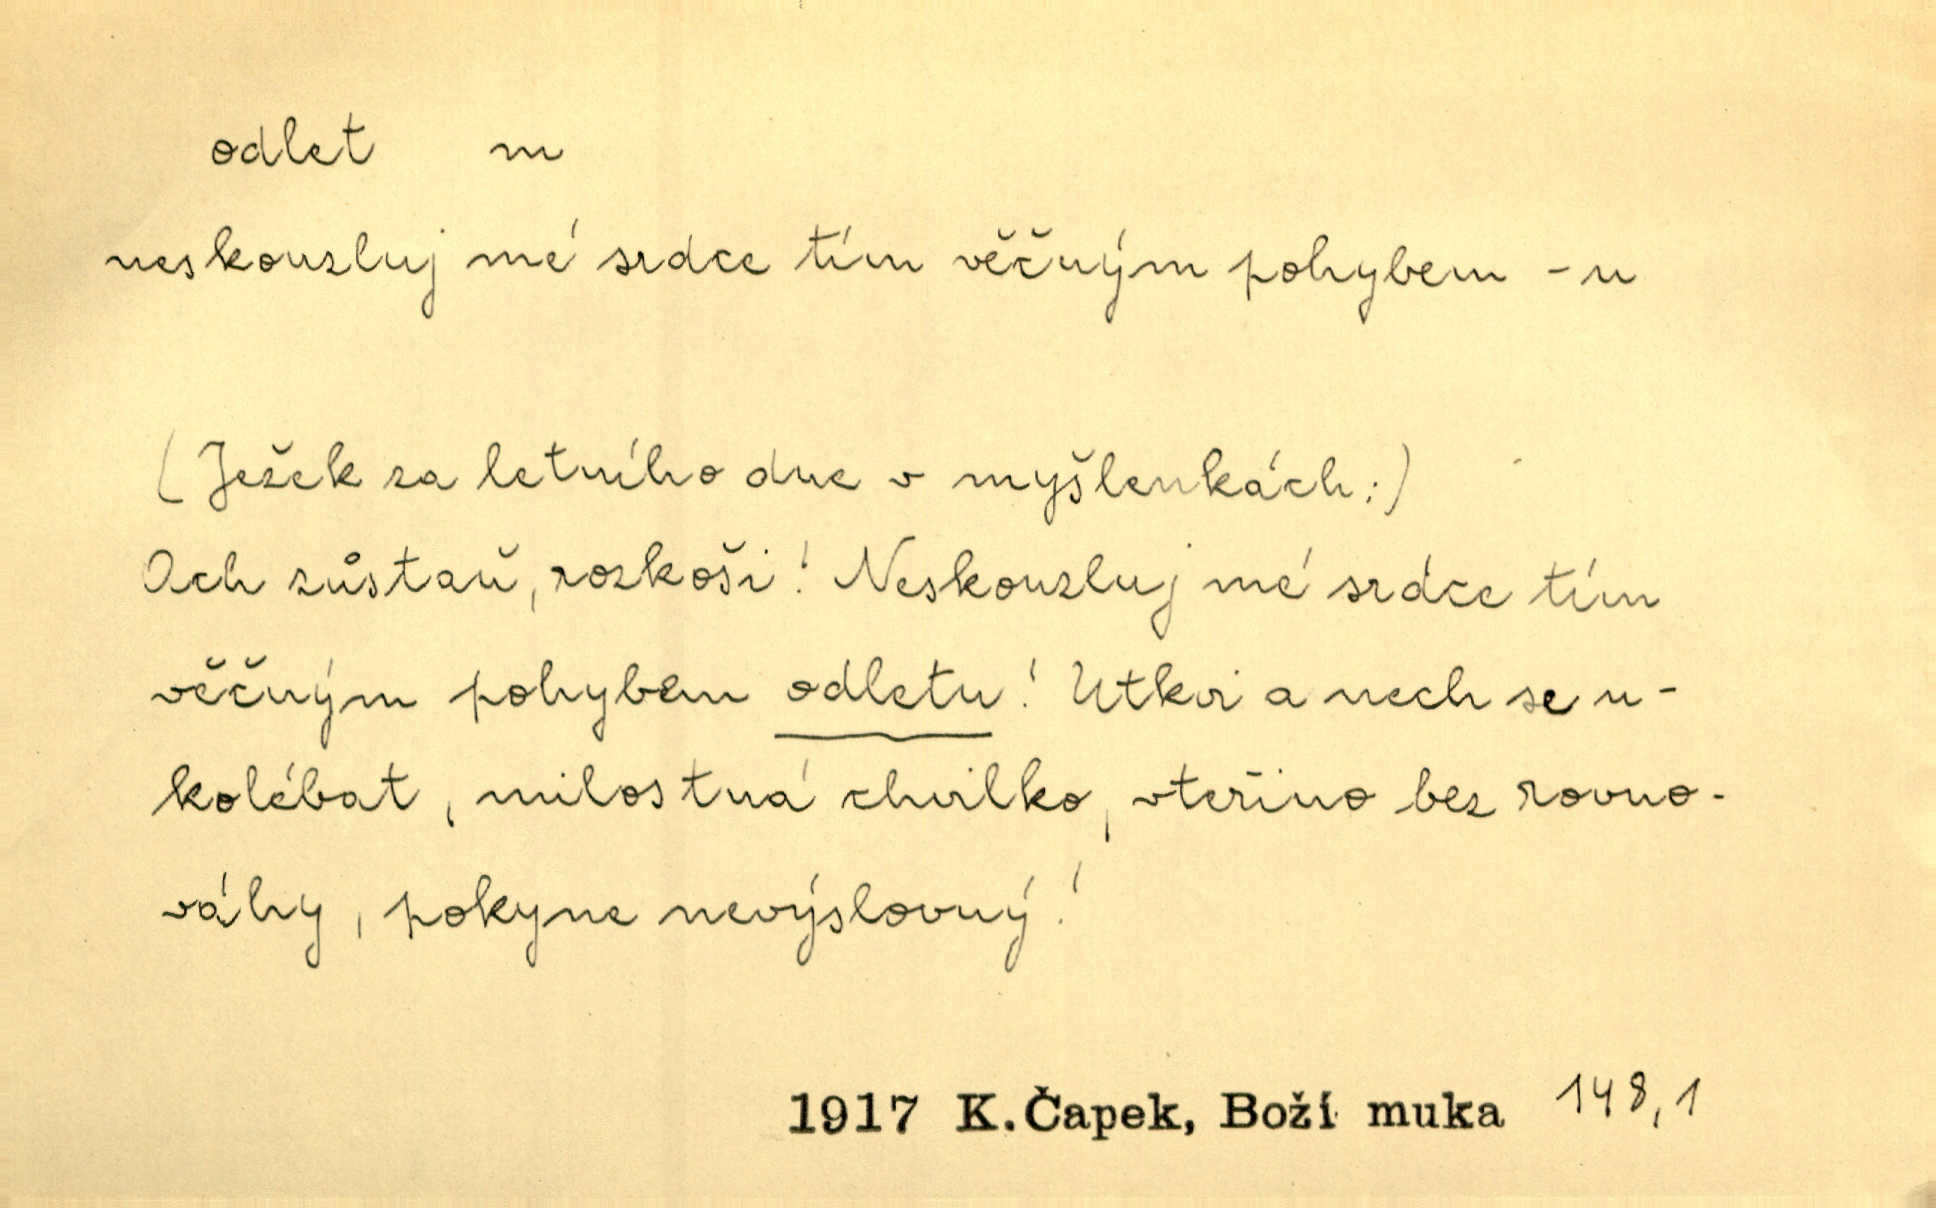 odlet m
neskouzluj mé srdce tím věčným pohybem -u
(Ježek za letního dne v myšlenkách:)
Och zůstaň, rozkoši! Neskouzluj mé srdce tím
věčným pohybem odletu! Utkvi a nech se u-
kolébat, milostná chvilko, vteřino bez rovno-
váhy, pokyne nevýslovný!
1917 K. Čapek, Boží muka 148,1